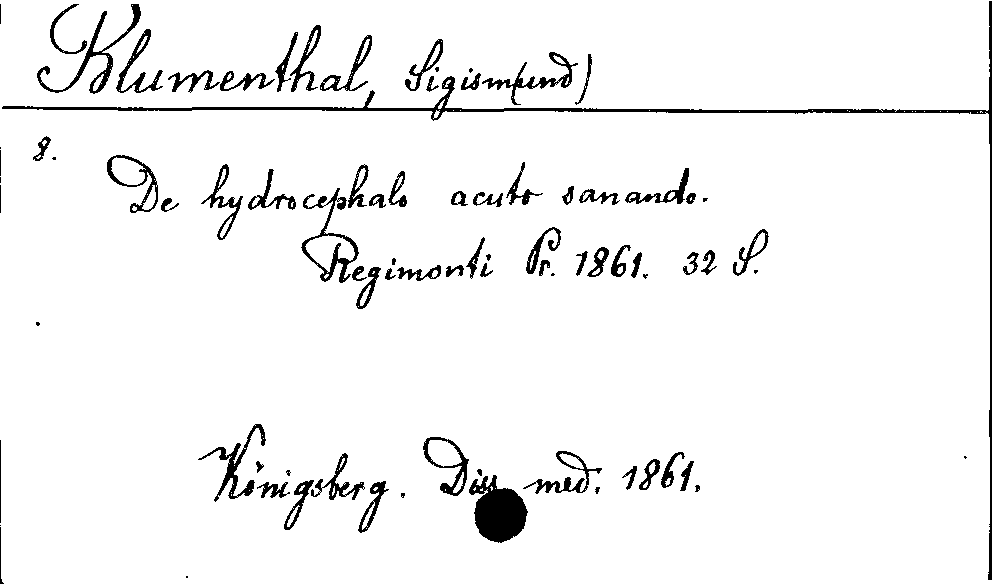 Blumenthal, Sigism(und)
8.
De hydrocephalo acuto sanando.
Regimonti Pr. 1861. 32 S.
Königsberg. Diss. med. 1861.